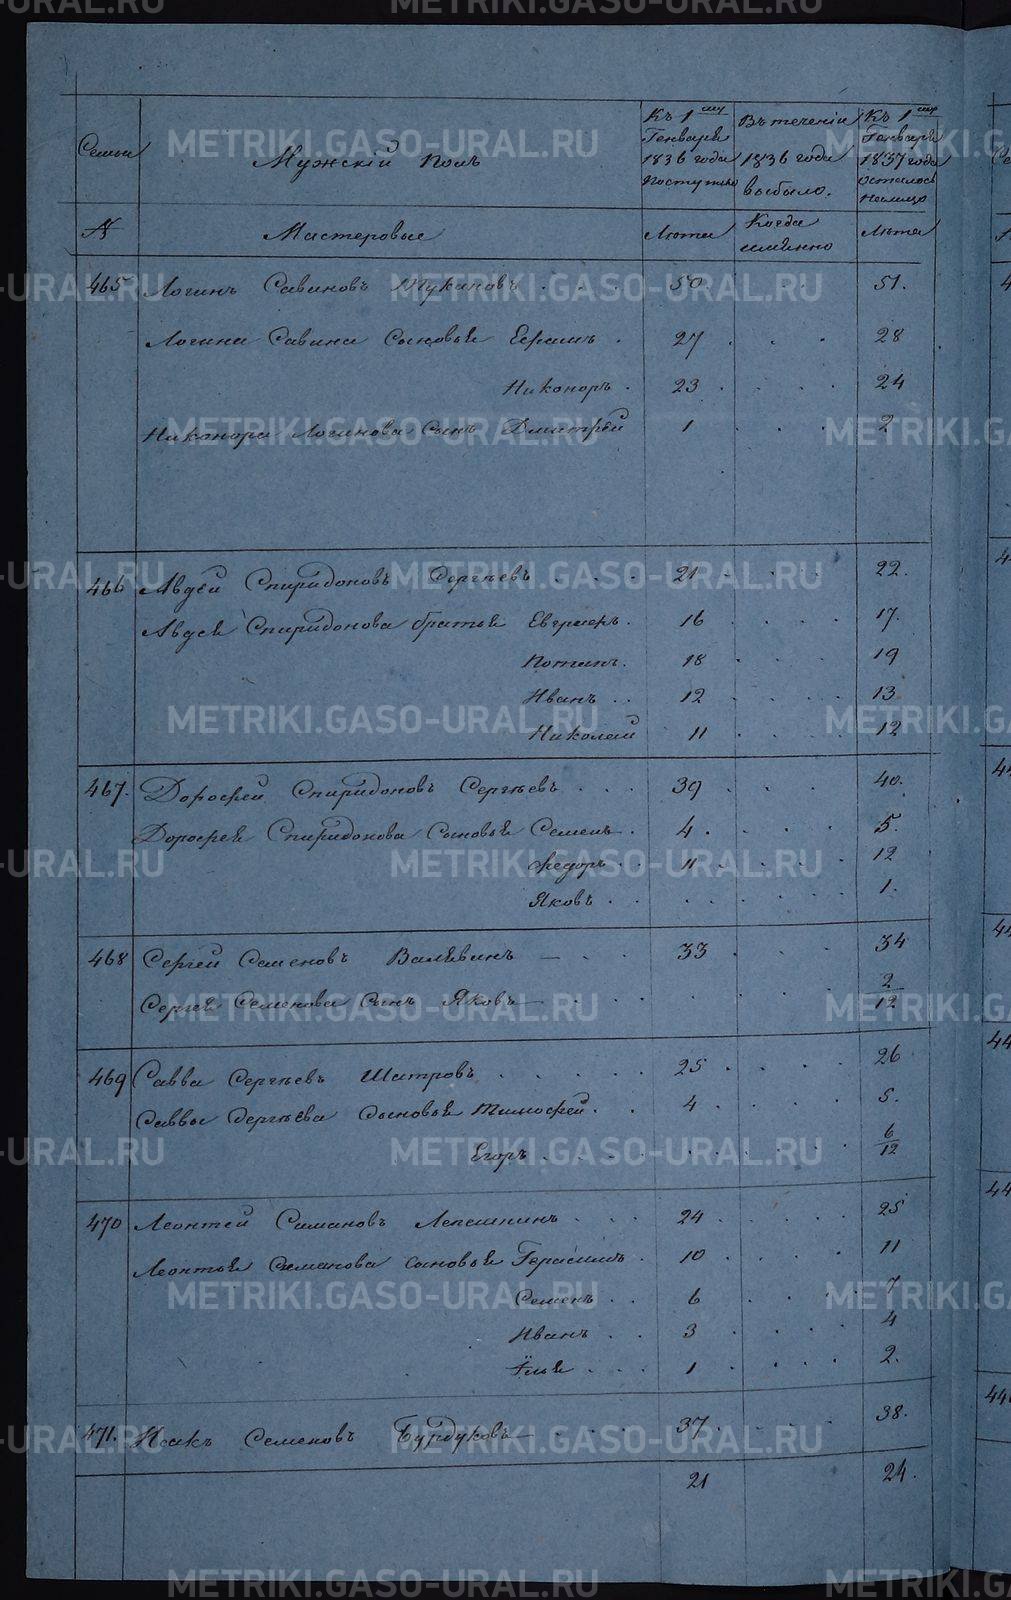 Семьи
Мужскій полъ
Къ 1му Генваря 1836 года Поступило
Въ теченіи 1836 года выбыло.
Къ 1му Генваря 1837 года осталось Налицо
№ Мастеровые Лѣта Когда имянно Лѣта
465 Логинъ Савиновъ . . . 50. . . 51.
Логина Савина Сыновья Ефимъ . 27 . . . 28
Никоноръ . 23 . . . . 24
Никонора Логинова Сынъ Дмитрей 1 . . . 2
466 Авдей Спиридоновъ Сергѣевъ . . . 21 . . . 22.
Авдея Спиридонова братья Евграфъ. 16 . . . . 17.
Потапъ. 18 . . . . 19
Иванъ . . 12 . . . . 13
Николай 11 . . . . 12
467. Дорофей Спиридоновъ Сергѣевъ . . . 39 . . . . 40.
Дорофея Спиридонова Сыновья Семенъ . 4 . . . . 5.
Федоръ . . 11 . . . . 12
Яковъ . . . . . . . 1.
468 Сергей Семеновъ — . . 33 . . . 34
Сергея Семенова Сынъ Яковъ — . . . . . . 2/12
469 Савва Сергѣевъ Шатровъ . . . . . 25 . . . . 26
Саввы Сергѣева Сыновья Тимофей . . 4 . . . . 5.
Егоръ . . . . . . . . 6/12
470 Леонтей Симановъ Лепешпинъ . . . 24 . . . . 25
Леонтья Симанова сыновья Герасимъ . 10 . . . . 11
Семенъ . . 6 . . . . 7
Иванъ . . 3 . . . . 4
Илья . . . 1 . . . . 2.
471. Исакъ Семеновъ Бурдуковъ — . . . 37 . . . . 38.
21 24.
METRIKI.GASO-URAL.RU